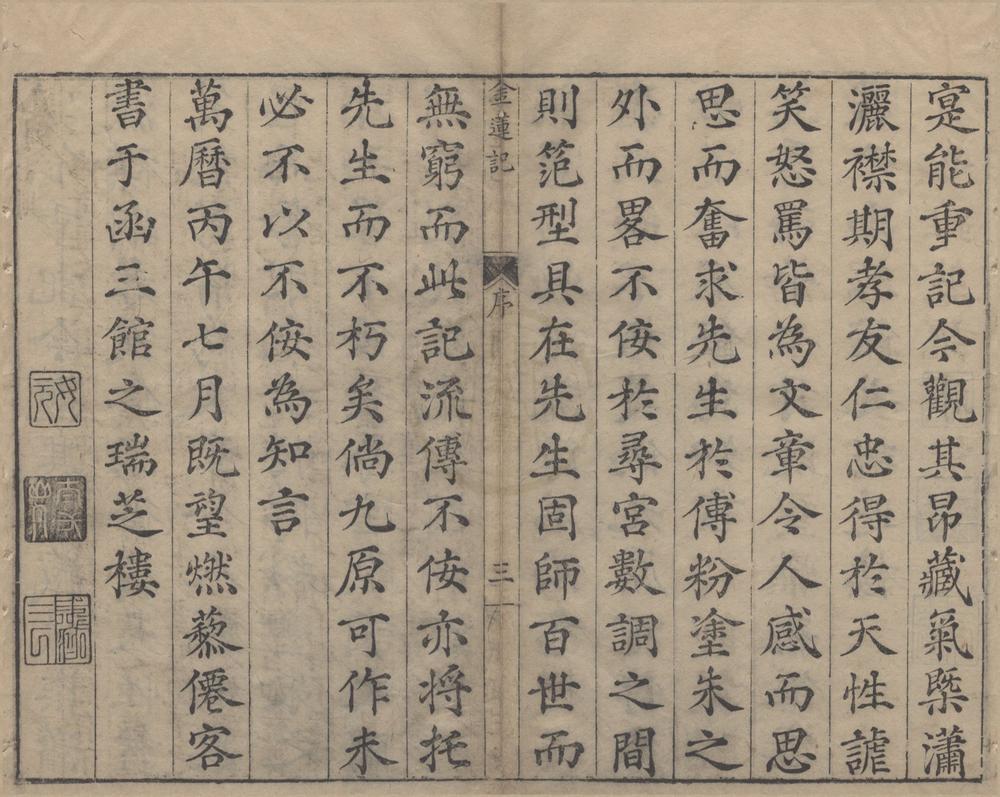 寔能重記今觀其昂藏氣槩瀟
灑襟期孝友仁忠得於天性謔
笑怒罵皆為文章令人感而思
思而奮求先生於傅粉塗朱之
外而畧不侫於尋宮數調之間
則笵型具在先生固師百世而
金蓮記
序
三
無窮而此記流傳不侫亦將托
先生而不朽矣倘九原可作未
必不以不侫為知言
萬曆丙午七月既望燃藜僊客
書于函三館之瑞芝樓